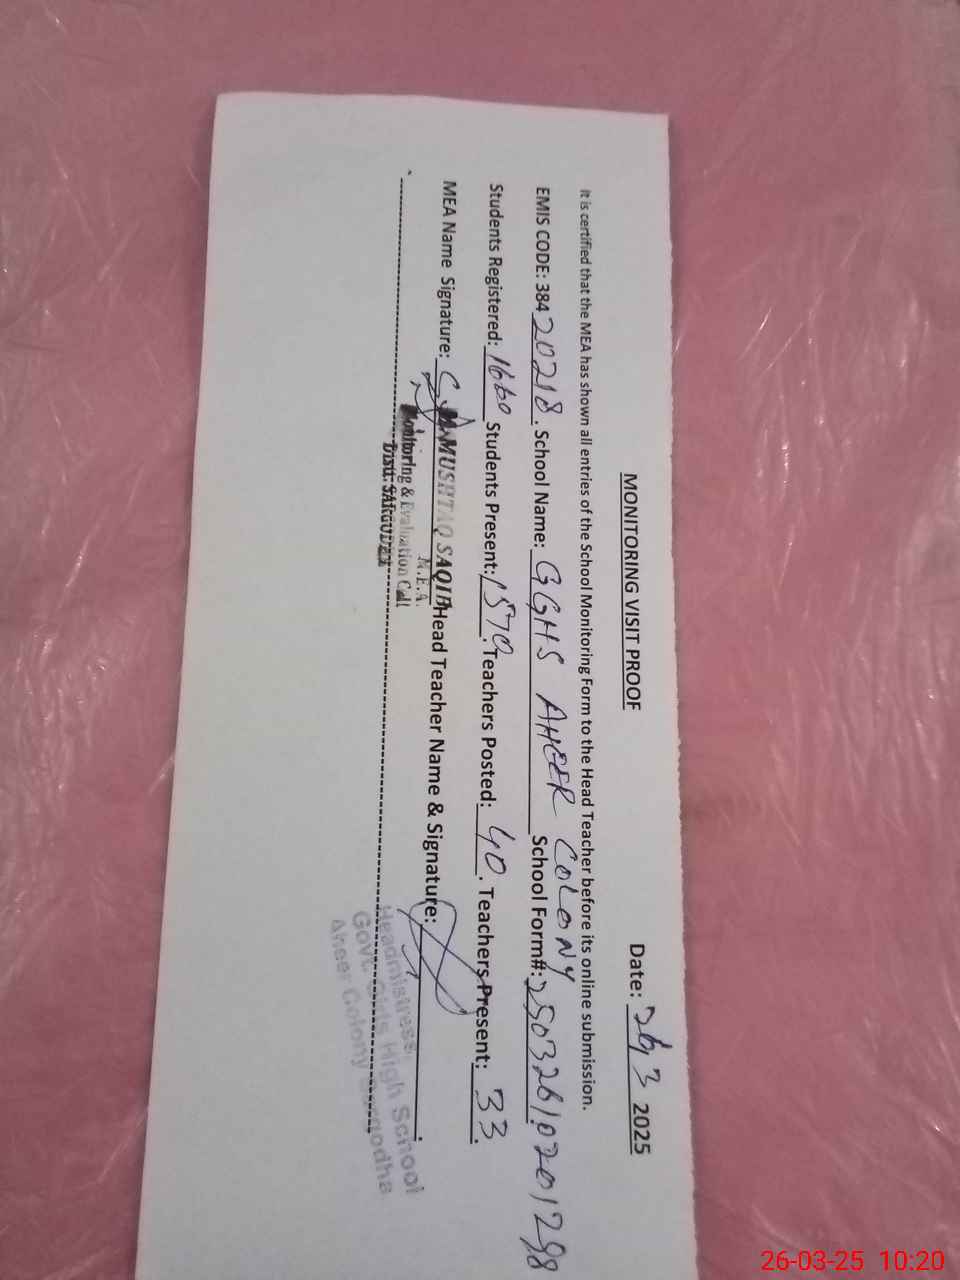 MONITORING VISIT PROOF
Date: 26,3 2025
It is certified that the MEA has shown all entries of the School Monitoring Form to the Head Teacher before its online submission.
EMIS CODE: 38420218. School Name: GGHS AHEER COLONY School Form#: 250326102012
Students Registered: 1660 Students Present: 1570. Teachers Posted: 40. Teachers Present: 33.
MEA Name Signature: MUSHTAQ SAQIB Head Teacher Name & Signature:
M.E.A.
Monitoring & Evaluation Cell
Distt: SARGODHA
Headmistress
Govt. Girls High School
Aheer Colony Sargodha
26-03-25 10:20